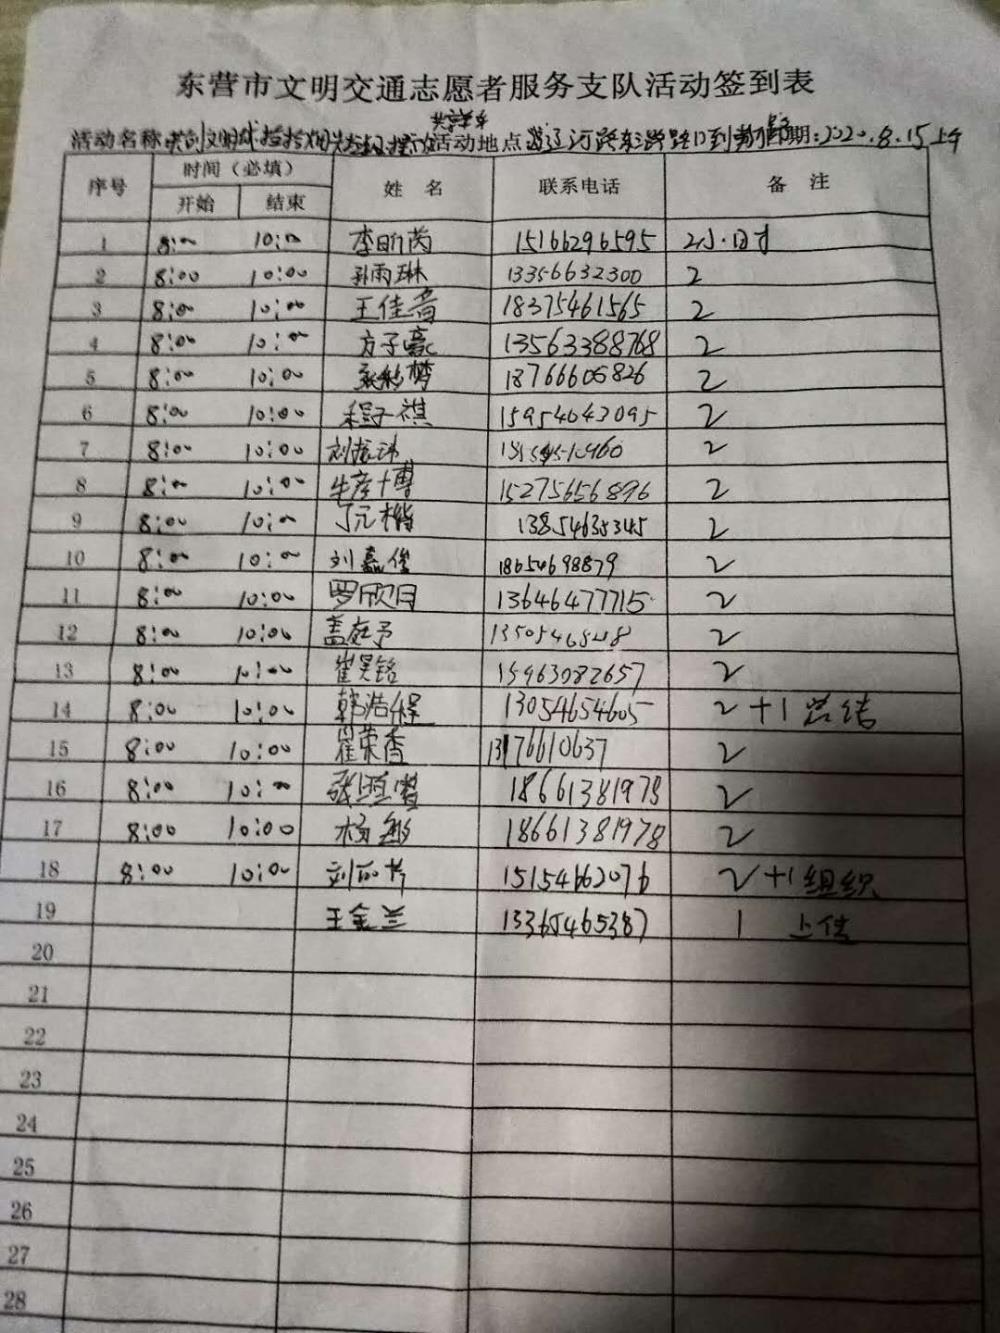 东营市文明交通志愿者服务支队活动签到表
共享单车
活动名称 共创文明城 活动地点 辽河路东三路路口到 日期:2020.8.15上午
序号 时间（必填） 姓 名 联系电话 备 注
开始 结束
1 8:00 10:00 李昕芮 15166296595 2小时
2 8:00 10:00 孙雨琳 13356632300 2
3 8:00 10:00 王佳音 18375461565 2
4 8:00 10:00 方子豪 13563388768 2
5 8:00 10:00 梦 18766606826 2
6 8:00 10:00 程子祺 15954643095 2
7 8:00 10:00 刘振玮 2
8 8:00 10:00 生产博 15275656896 2
9 8:00 10:00 丁元楷 13854635345 2
10 8:00 10:00 刘嘉俊 18654698879 2
11 8:00 10:00 罗欣月 13646477715 2
12 8:00 10:00 盖庭予 2
13 8:00 10:00 崔昊铭 15963082657 2
14 8:00 10:00 韩浩程 13054654605 2+1 总结
15 8:00 10:00 崔荣香 13176610637 2
16 8:00 10:00 张 18661381978 2
17 8:00 10:00 杨 18661381978 2
18 8:00 10:00 刘 15154662076 2+1组织
19 王金兰 13365465387 1 上传
20
21
22
23
24
25
26
27
28